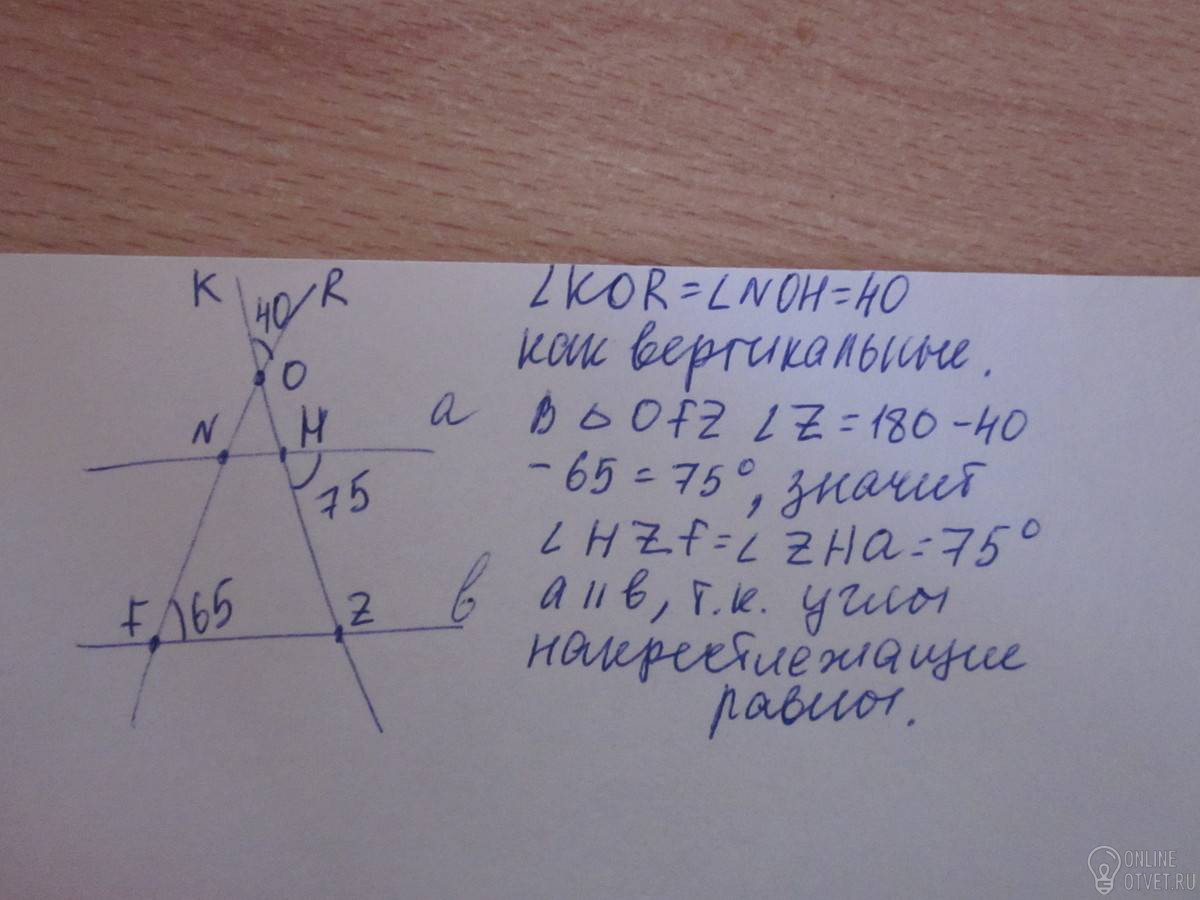 K
40
R
O
N
H
a
75
F
65
Z
в
∠KOR=∠NOH=40
как вертикальные.
В △ OFZ ∠Z=180-40
-65=75°, значит
∠HZF=∠ZHa=75°
a॥в, т.к. углы
накрестлежащие
равны.
ONLINE
OTVET.RU